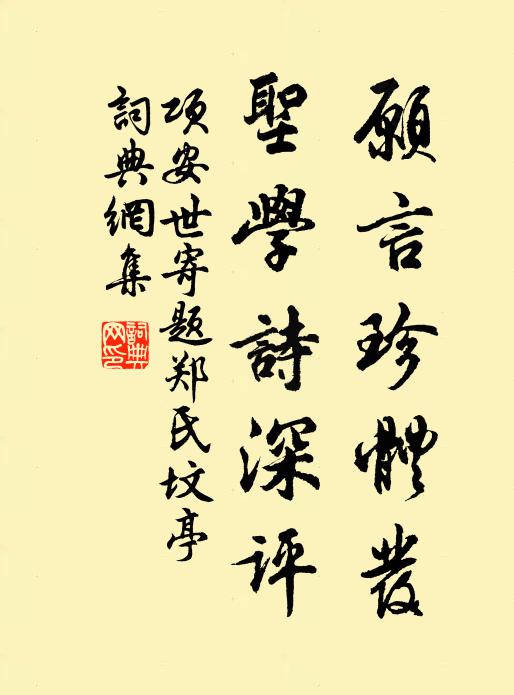 願言珍體發
聖學詩深評
项安世寄题郑氏坟亭
詞典網集
詞典
网印